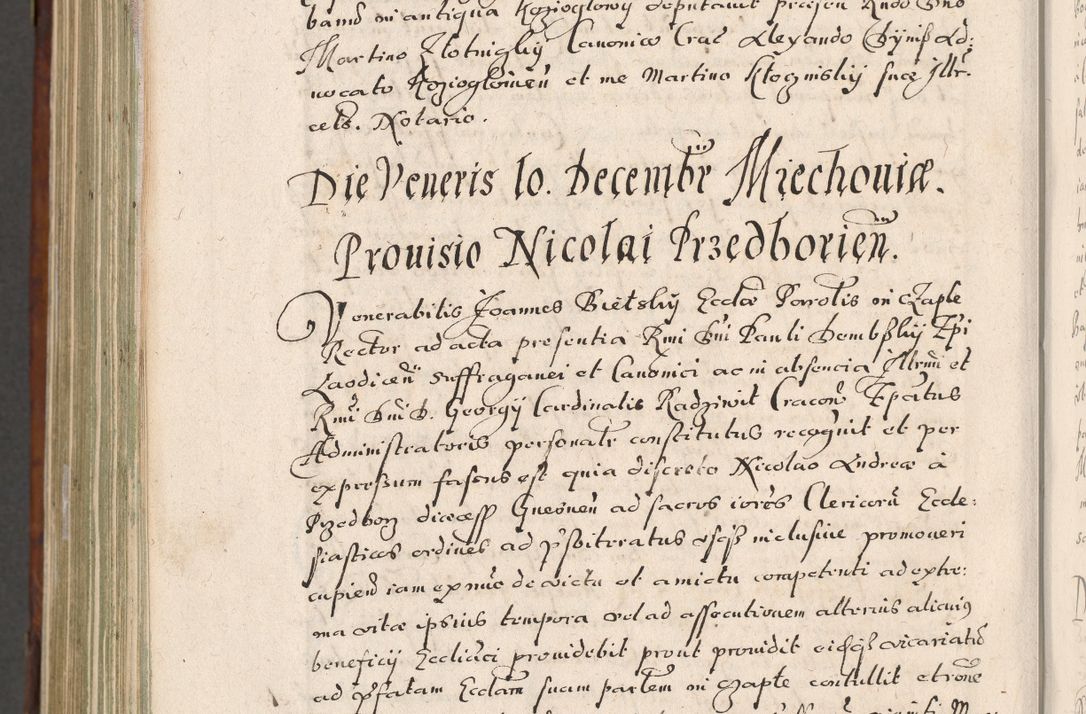 band in antiqua Kozioglowy deputavit presen Rndo Dno
Martino Zlotnigkij Canonico Crac Alexandro Ad:
uocato Kozioglouien et me Martino Kloczinskij suæ Illr.
cels. Notario.
Die Veneris 10. Decembr Miechouiæ.
Prouisio Nicolai Przedborien.
Venerabilis Joannes Bielskij Ecclæ Parolis in Czaple
Rector ad acta presentia Rmi Dni Pauli Dembskij Epi
Laodicen Suffraganei et Canonici ac in absencia Illrmi et
Rmi Dni D. Georgij Cardinalis Radziwil Cracou Epatus
Administratoris personalr constitutus recognit et per
expressum fassus est quia discreto Nicolao Andreæ à
Przedborz diœcess Gnesnen ad sacros Clericoru Eccle:
siasticos ordines ad psbiteratus inclusiue promoueri
cupien iam ex nuc de victu et amictu competenti ad extre:
ma vitæ ipsius tempora vel ad assecutionem alterius alicuius
beneficij Eccliaci prouidebit prout providit vicariatu
ad pfatam Ecclam suam parlem in Czaple contullit et